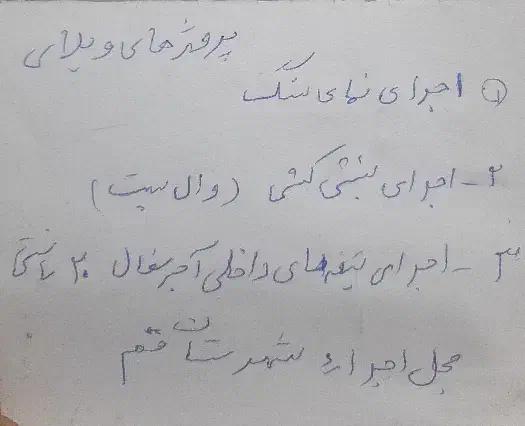 پروژه های ویلای
۱ اجرای نمای سنگ
۲ - اجرای نبشی کشی (وال پست)
۳ - اجرای تیغه های داخلی آجر سفال ۲۰ سانتی
محل اجرا: شهرستان قم